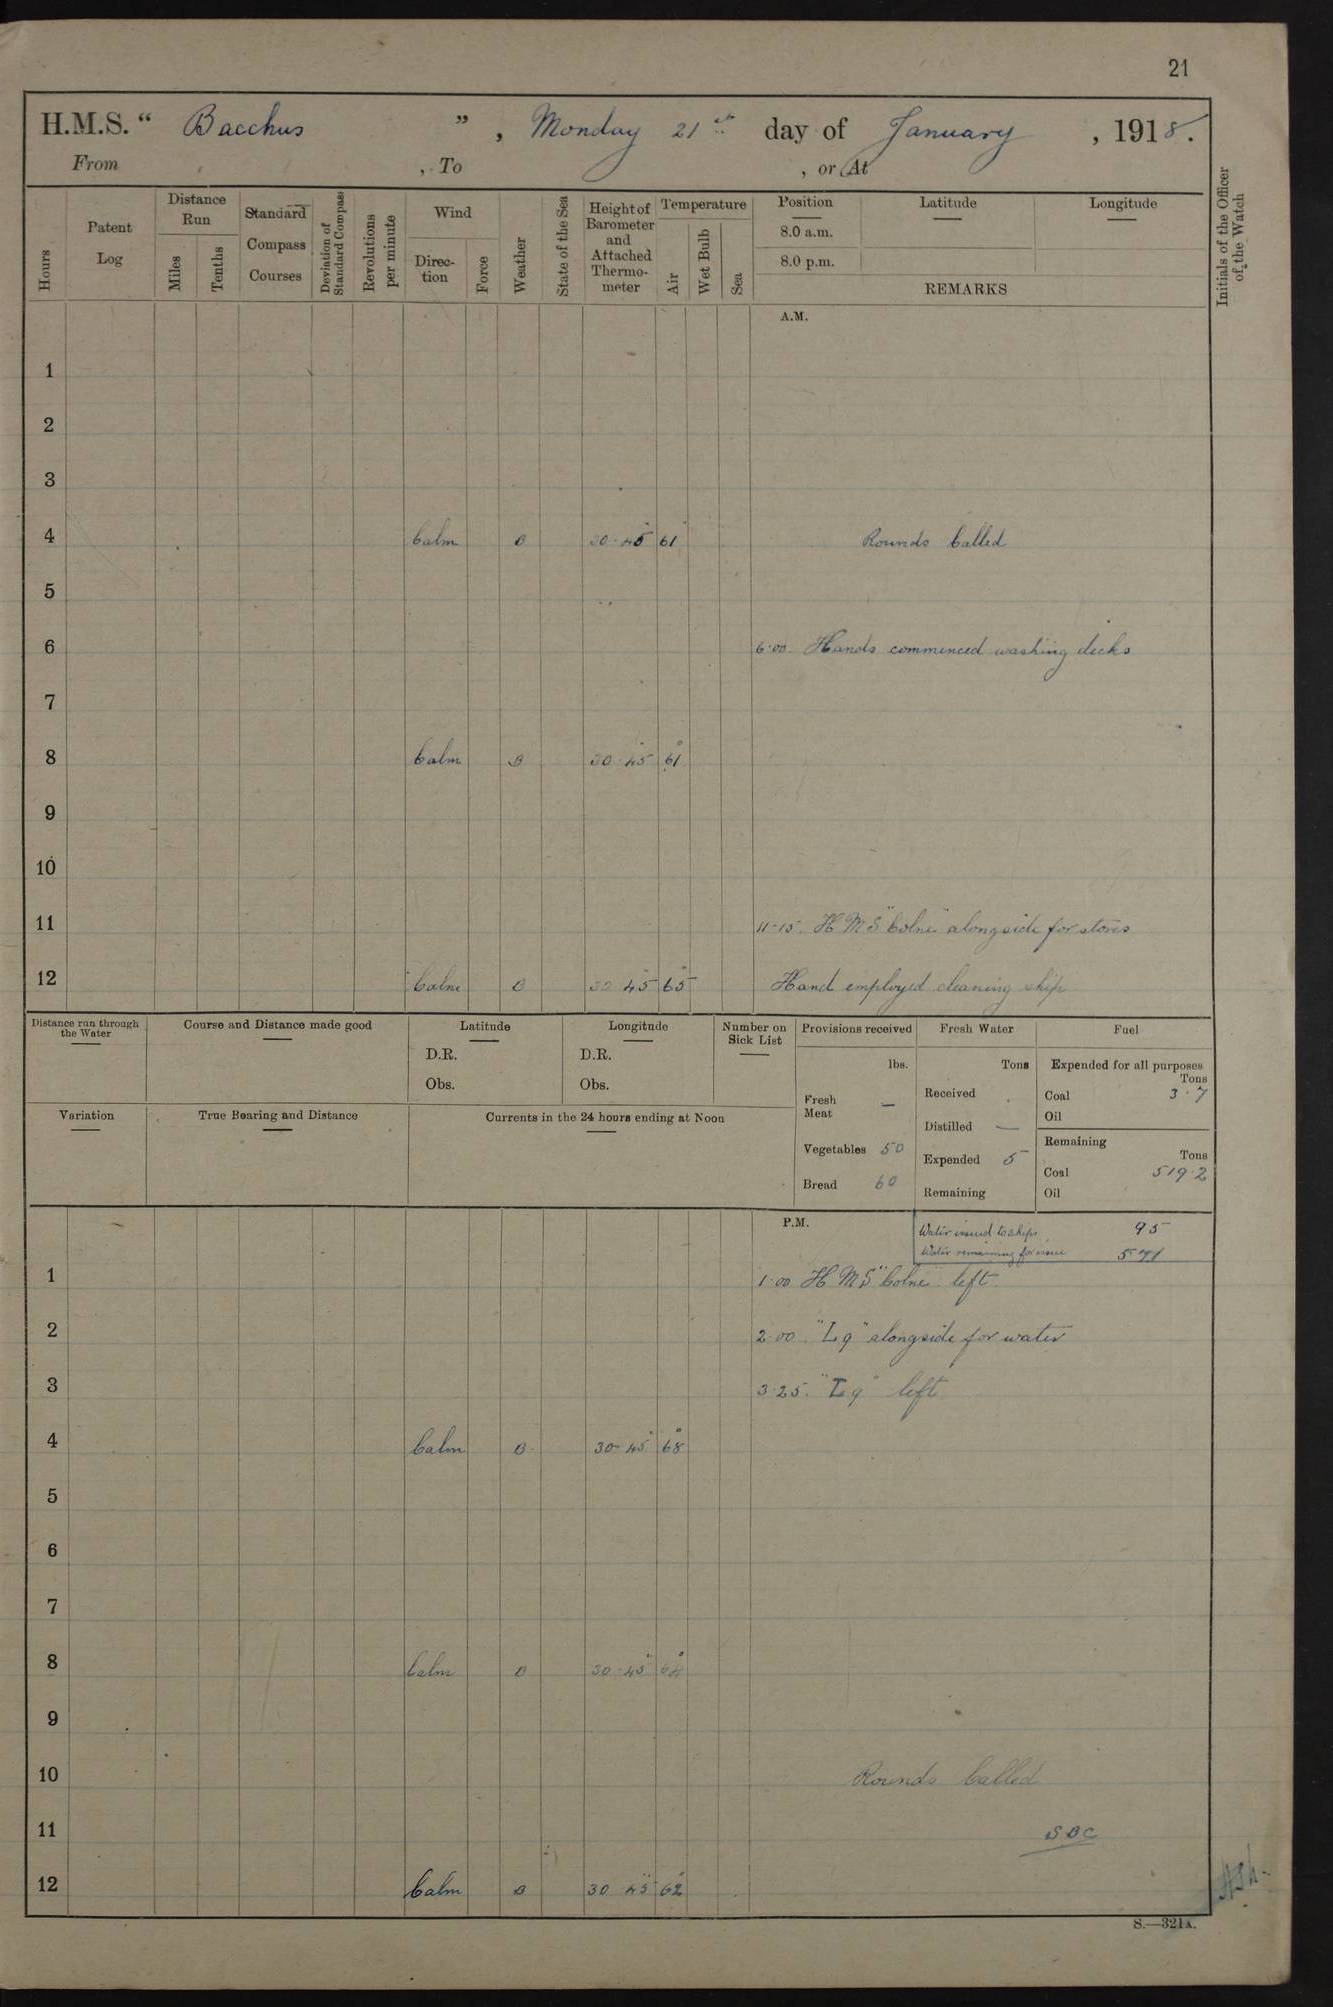 21
H.M.S. “ Bacchus ” , Monday 21st day of January , 1918.
From , To , or At
Hours
Patent Log
Distance Run
Miles
Tenths
Standard Compass Courses
Deviation of Standard Compass
Revolutions per minute
Wind
Direc-tion
Force
Weather
State of the Sea
Height of Barometer and Attached Thermo-meter
Temperature
Air
Wet Bulb
Sea
Position
8.0 a.m.
8.0 p.m.
Latitude
Longitude
REMARKS
Initials of the Officer of the Watch
A.M.
1
2
3
4 Calm B 30·45 61 Rounds Called
5
6 6·00. Hands commenced washing decks
7
8 Calm B 30·45 61
9
10
11 11-15. H M S "Colne" alongside for stores
12 Calm B 30 45 65 Hand employed cleaning ship
Distance run through the Water
Course and Distance made good
Latitude
D.R.
Obs.
Longitude
D.R.
Obs.
Number on Sick List
Variation
True Bearing and Distance
Currents in the 24 hours ending at Noon
Provisions received
lbs.
Fresh Meat —
Vegetables 50
Bread 60
Fresh Water
Tons
Received
Distilled —
Expended 5
Remaining
Fuel
Expended for all purposes
Tons
Coal 3·7
Oil
Remaining
Tons
Coal 519·2
Oil
P.M.
Water issued to ships 95
Water remaining for issue 571
1 1·00 H M S "Colne" left.
2 2·00. "L9" alongside for water
3 3·25. "L9" left
4 Calm B 30-45 68
5
6
7
8 Calm B 30·45 64
9
10 Rounds Called
11 SBC
12 Calm B 30 45 62
S.—321A.